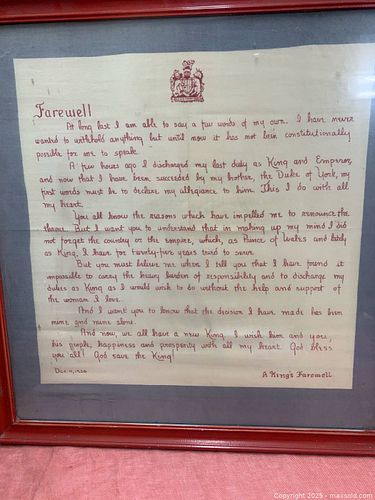 Farewell
At long last I am able to say a few words of my own. I have never
wanted to withhold anything but until now it has not been constitutionally
possible for me to speak.
A few hours ago I discharged my last duty as King and Emperor,
and now that I have been succeeded by my brother, the Duke of York, my
first words must be to declare my allegiance to him. This I do with all
my heart.
You all know the reasons which have impelled me to renounce the
throne. But I want you to understand that in making up my mind I did
not forget the country or the empire, which, as Prince of Wales and lately
as King, I have for twenty-five years tried to serve.
But you must believe me when I tell you that I have found it
impossible to carry the heavy burden of responsibility and to discharge my
duties as King as I would wish to do without the help and support of
the woman I love.
And I want you to know that the decision I have made has been
mine and mine alone.
And now, we all have a new King. I wish him and you,
his people, happiness and prosperity with all my heart. God bless
you all! God save the King!
Dec. 11, 1936
A King's Farewell
Copyright 2025 - maxsold.com